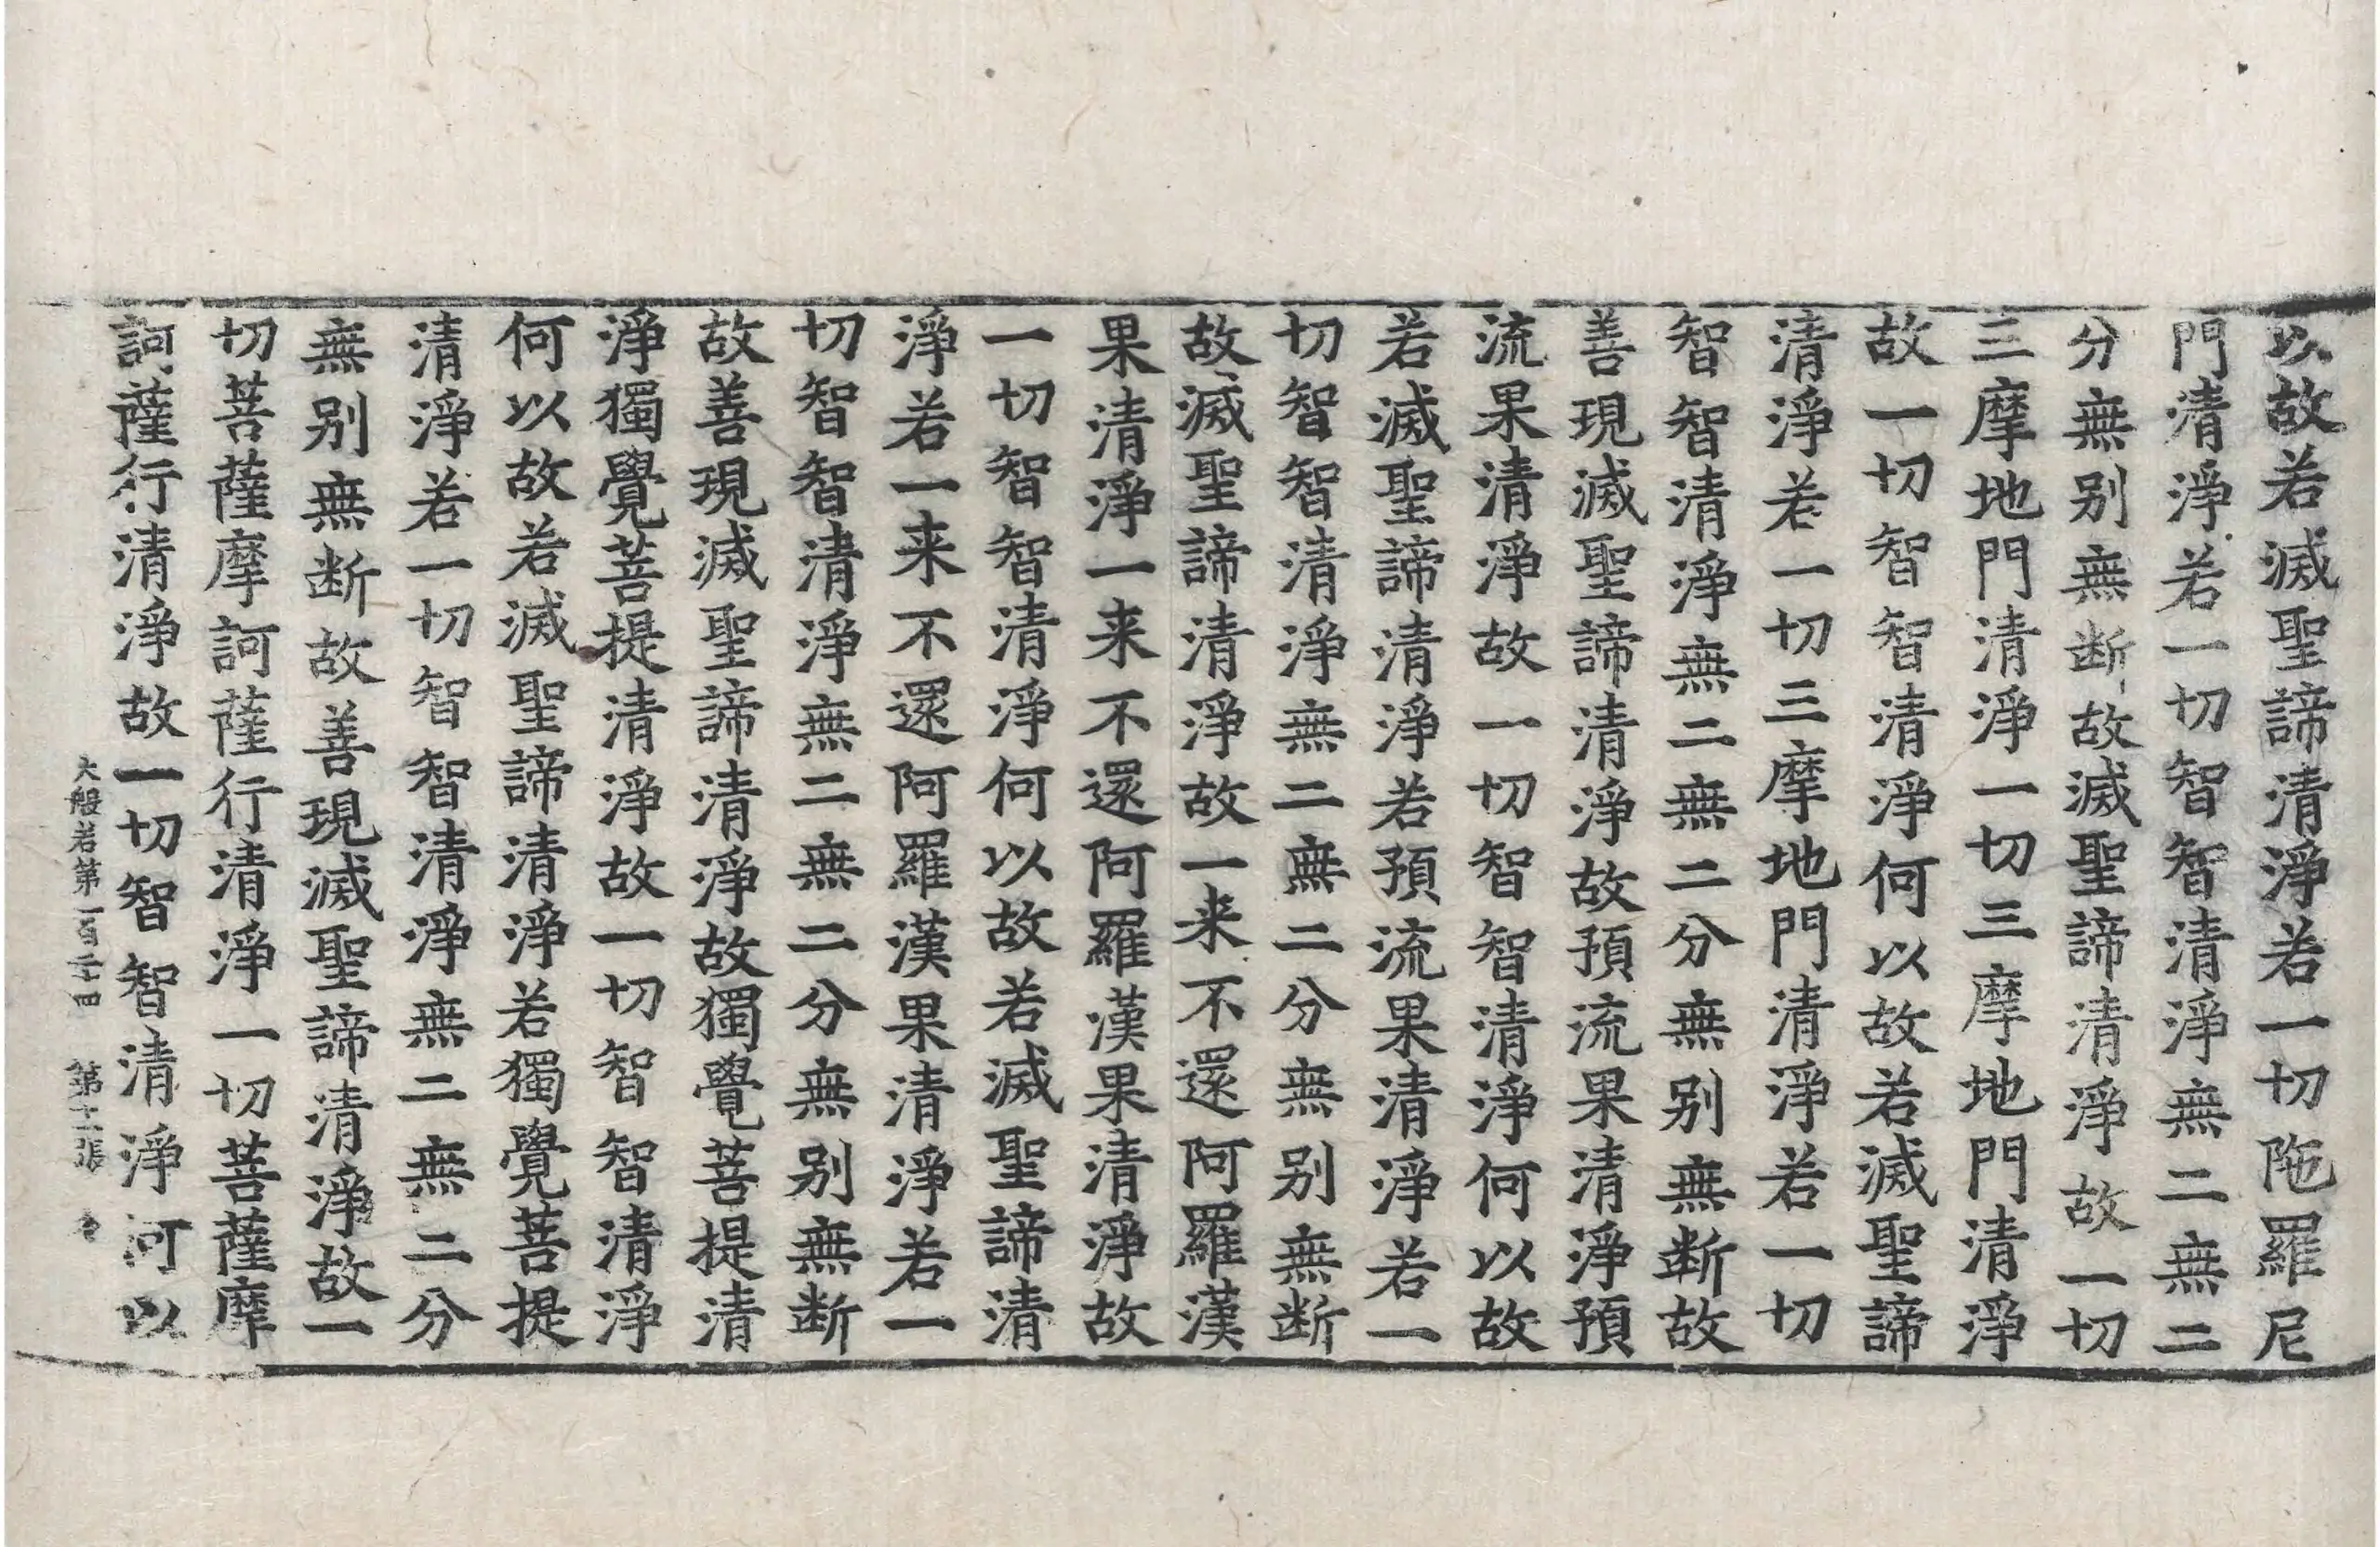 以故若滅聖諦清淨若一切陁羅尼
門清淨若一切智智清淨無二無二
分無别無断故滅聖諦清淨故一切
三摩地門清淨一切三摩地門清淨
故一切智智清淨何以故若滅聖諦
清淨若一切三摩地門清淨若一切
智智清淨無二無二分無别無断故
善現滅聖諦清淨故預流果清淨預
流果清淨故一切智智清淨何以故
若滅聖諦清淨若預流果清淨若一
切智智清淨無二無二分無别無断
故滅聖諦清淨故一来不還阿羅漢
果清淨一来不還阿羅漢果清淨故
一切智智清淨何以故若滅聖諦清
淨若一来不還阿羅漢果清淨若一
切智智清淨無二無二分無别無断
故善現滅聖諦清淨故獨覺菩提清
淨獨覺菩提清淨故一切智智清淨
何以故若滅聖諦清淨若獨覺菩提
清淨若一切智智清淨無二無二分
無别無断故善現滅聖諦清淨故一
切菩薩摩訶薩行清淨一切菩薩摩
訶薩行清淨故一切智智清淨何以
大般若第 百 四 第 張